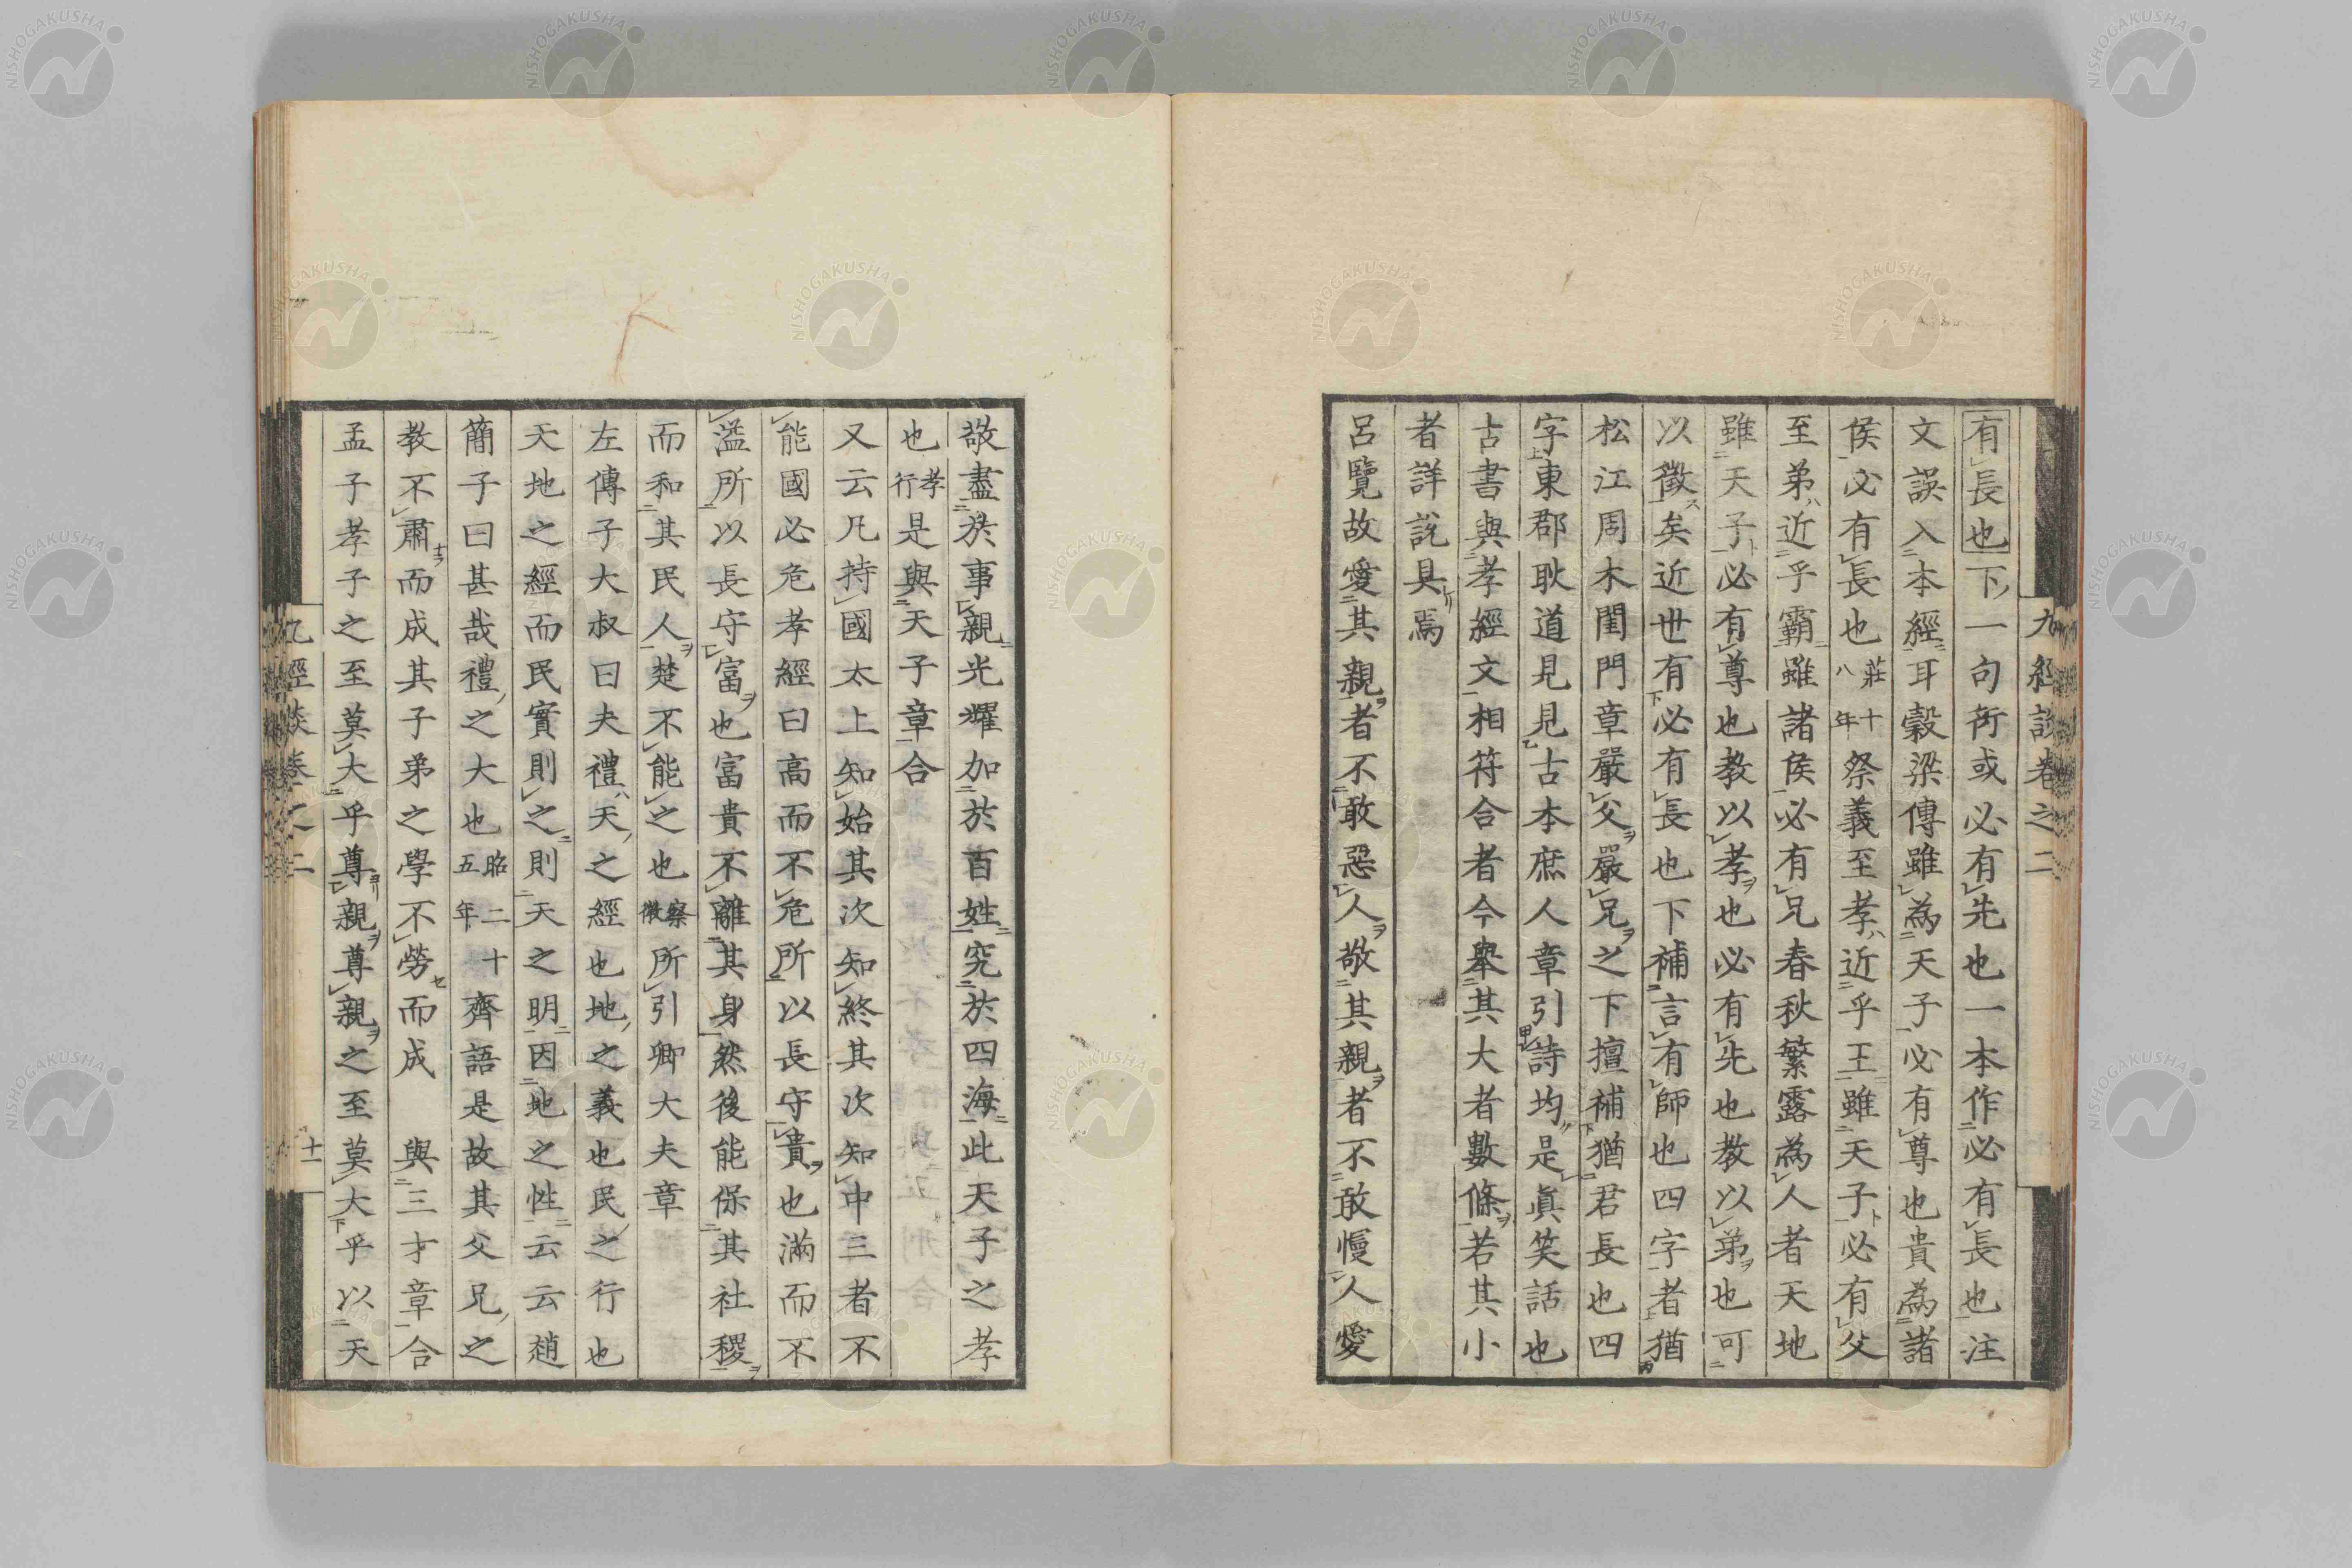 九經談卷之二
有長也下一句衍或必有先也一本作必有長也注
文誤入本經耳穀梁傳雖為天子必有尊也貴為諸
侯必有長也莊十八年祭義至孝近乎王雖天子必有父
至弟近乎霸雖諸侯必有兄春秋繁露為人者天地
雖天子必有尊也教以孝也必有先也教以弟也可
以徵矣近世有必有長也下補言有師也四字者猶
松江周木閨門章嚴父嚴兄之下擅補猶君長也四
字東郡耿道見見古本庶人章引詩均是真笑話也
古書與孝經文相符合者今舉其大者數條若其小
者詳說具焉
呂覽故愛其親者不敢惡人敬其親者不敢慢人愛
敬盡於事親光耀加於百姓究於四海此天子之孝
也孝行是與天子章合
又云凡持國太上知始其次知終其次知中三者不
能國必危孝經曰高而不危所以長守貴也滿而不
溢所以長守富也富貴不離其身然後能保其社稷
而和其民人楚不能之也察微所引卿大夫章
左傳子大叔曰夫禮天之經也地之義也民之行也
天地之經而民實則之則天之明因地之性云云趙
簡子曰甚哉禮之大也昭二十五年齊語是故其父兄之
教不肅而成其子弟之學不勞而成 與三才章合
孟子孝子之至莫大乎尊親尊親之至莫大乎以天
九經談卷之二 十一